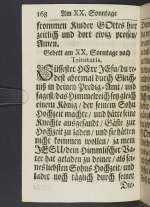 168 Am XX. Sonntage
frommen Kinder GOttes hier
zeitlich und dort ewig preisen/
Amen.
Gebett am XX. Sonntage nach
Trinitatis.
Süssester HErr JEsu/ du re-
dest abermal durch Gleich-
nüß in deinen Predig-Amt/ und
sagest/ das Himmelreich sey gleich
einem König/ der seinem Sohn
Hochzeit machte/ und hätte seine
Knechte ausgesandt/ Gäste zur
Hochzeit zu laden/ und sie hätten
nicht kommen wollen/ ja mein
JESU/ dein Himmlischer Va-
ter hat geladen zu deiner/ als sei-
nes liebsten Sohns Hochzeit/ und
ladet noch täglich durch seine
Die-